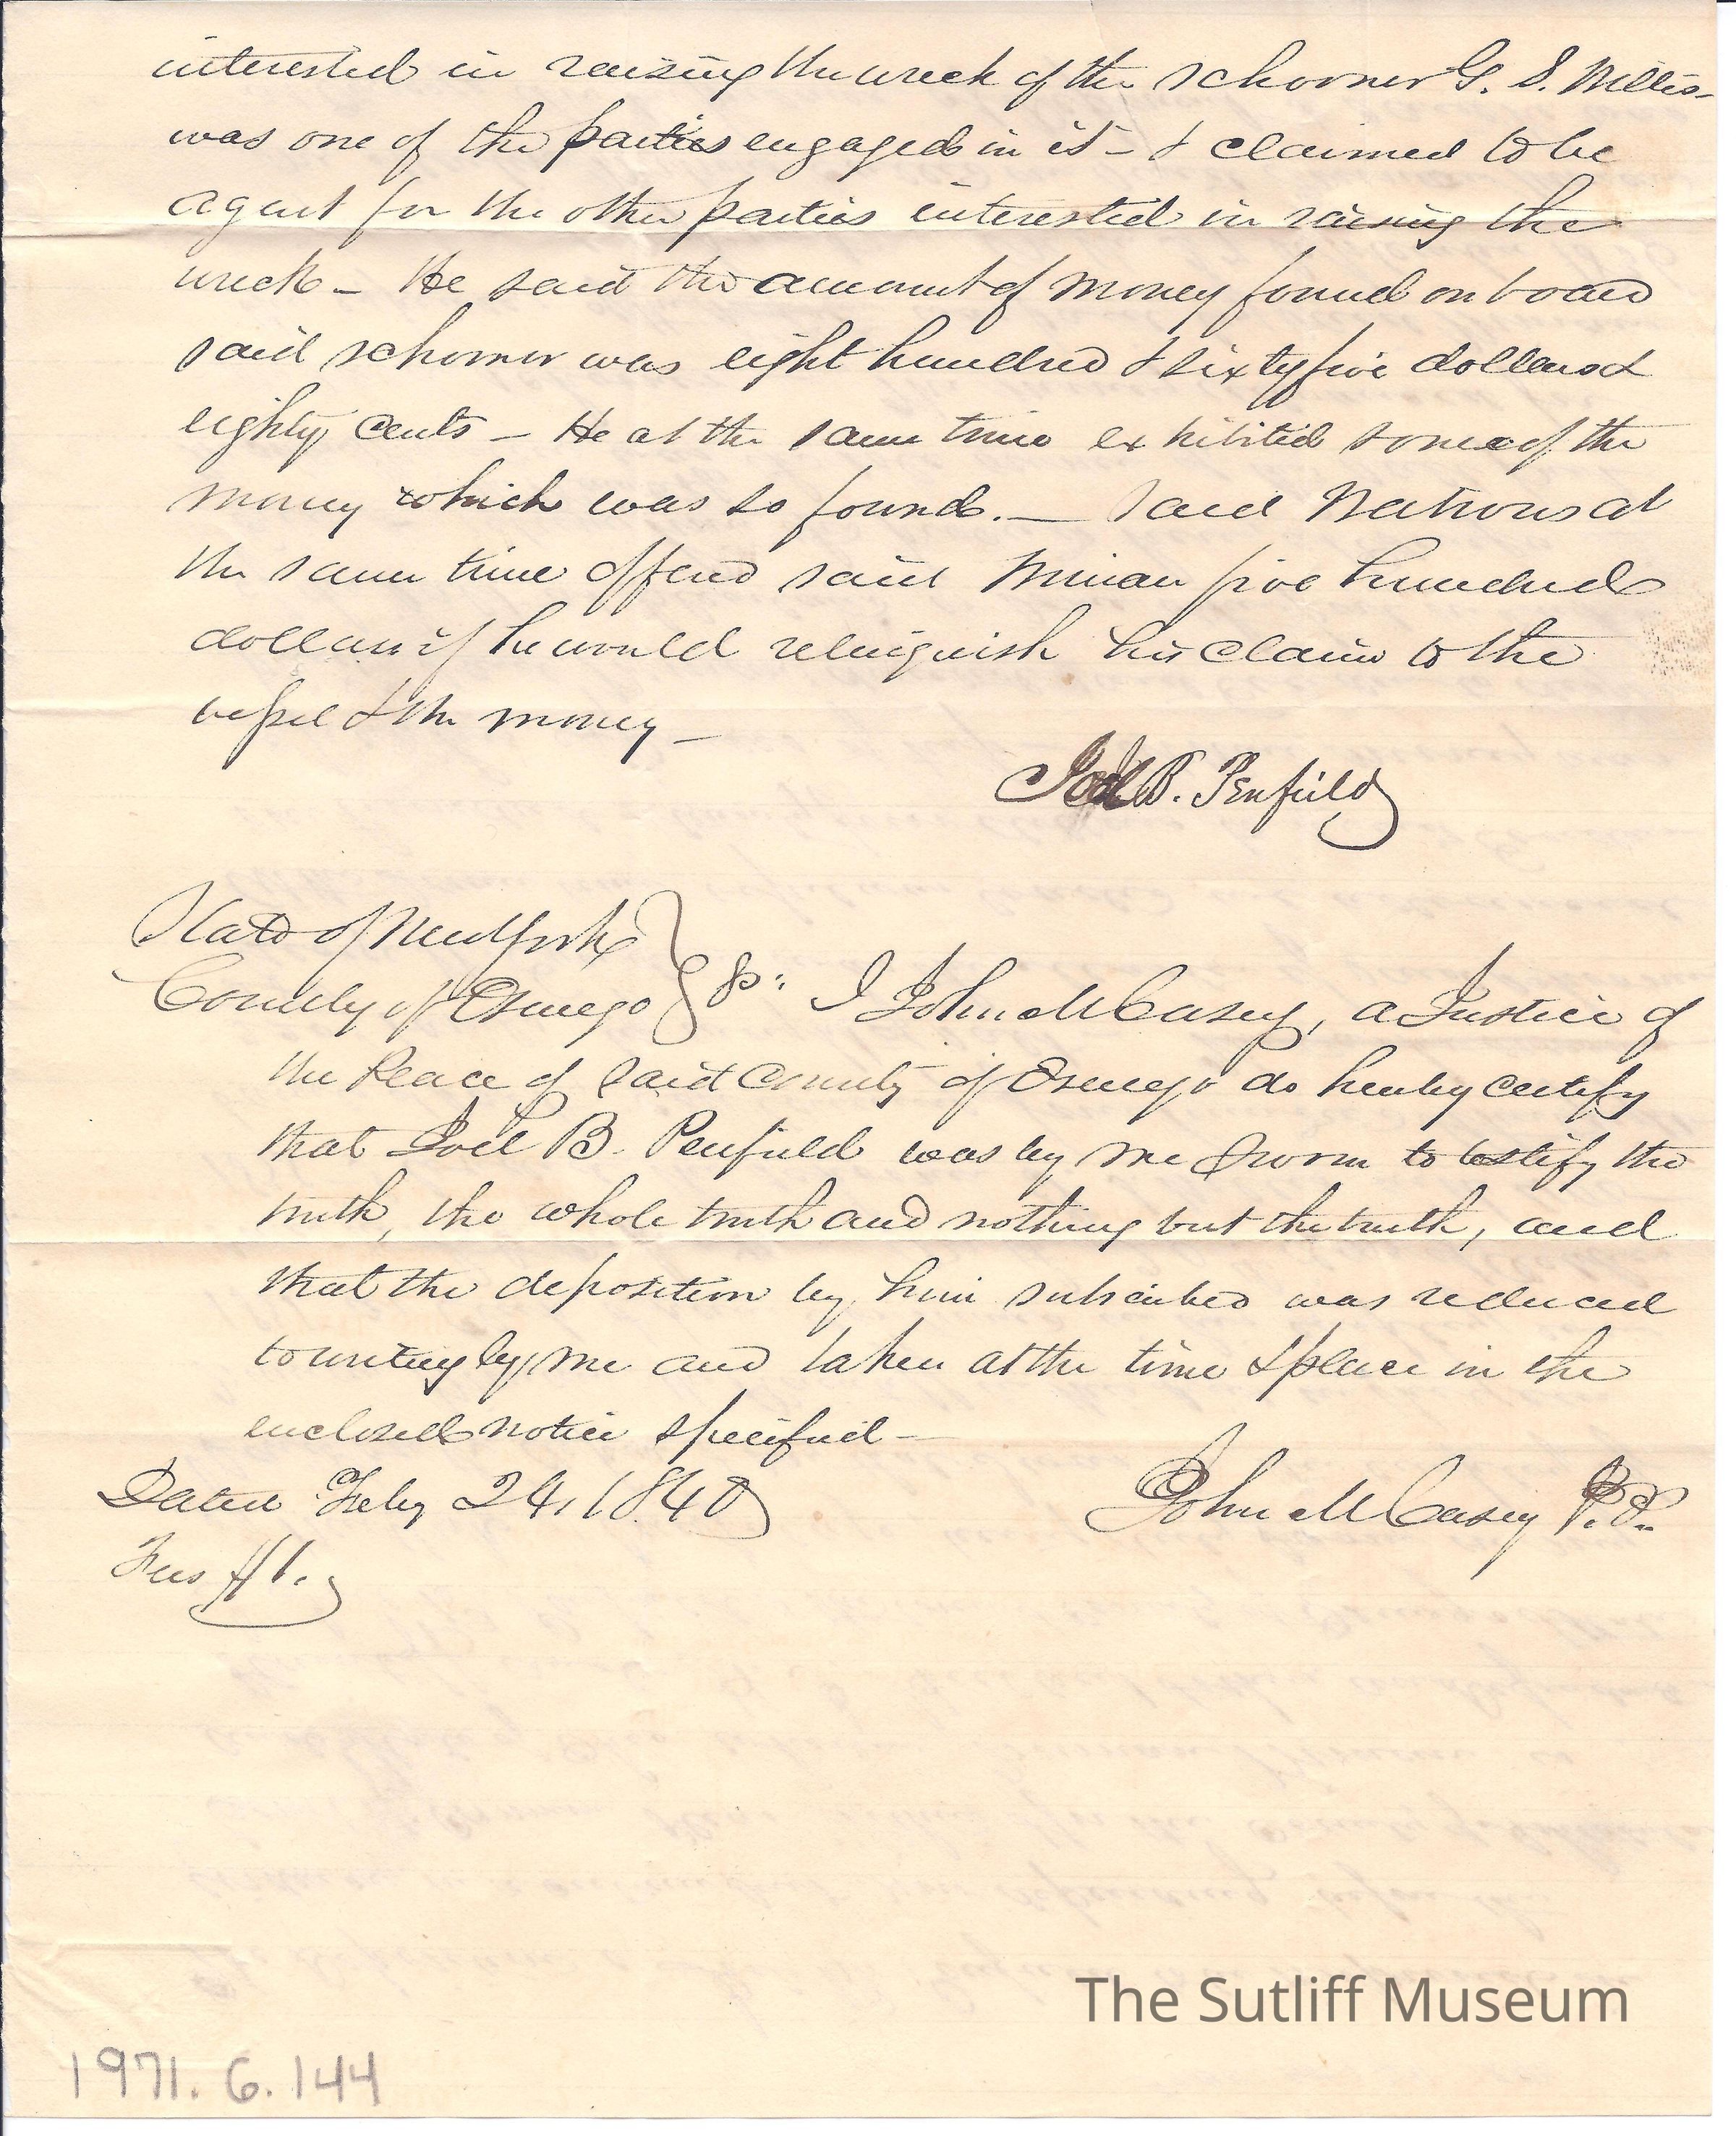 interested in raising the wreck of the schooner G. S. Willis -
was one of the parties engaged in it - & claimed to be
agent for the other parties interested in raising the
wreck - He said the amount of money found on board
said schooner was eight hundred & sixty five dollars &
eighty cents - He at the same time exhibited some of the
money which was so found. - Said at
the same time offered said five hundred
dollars if he would relinquish his claim to the
vessel & the money -
Joel B. Penfield
State of New York
County of Oswego } ss: I John M Casey, a Justice of
the Peace of said County of Oswego do hereby certify
that Joel B. Penfield was by me sworn to testify the
truth, the whole truth and nothing but the truth, and
that the deposition by him subscribed was reduced
to writing by me and taken at the time & place in the
enclosed notice specified -
Dated Feby 24, 1840 John M Casey J.P.
Fees $1.
The Sutliff Museum
1971.6.144